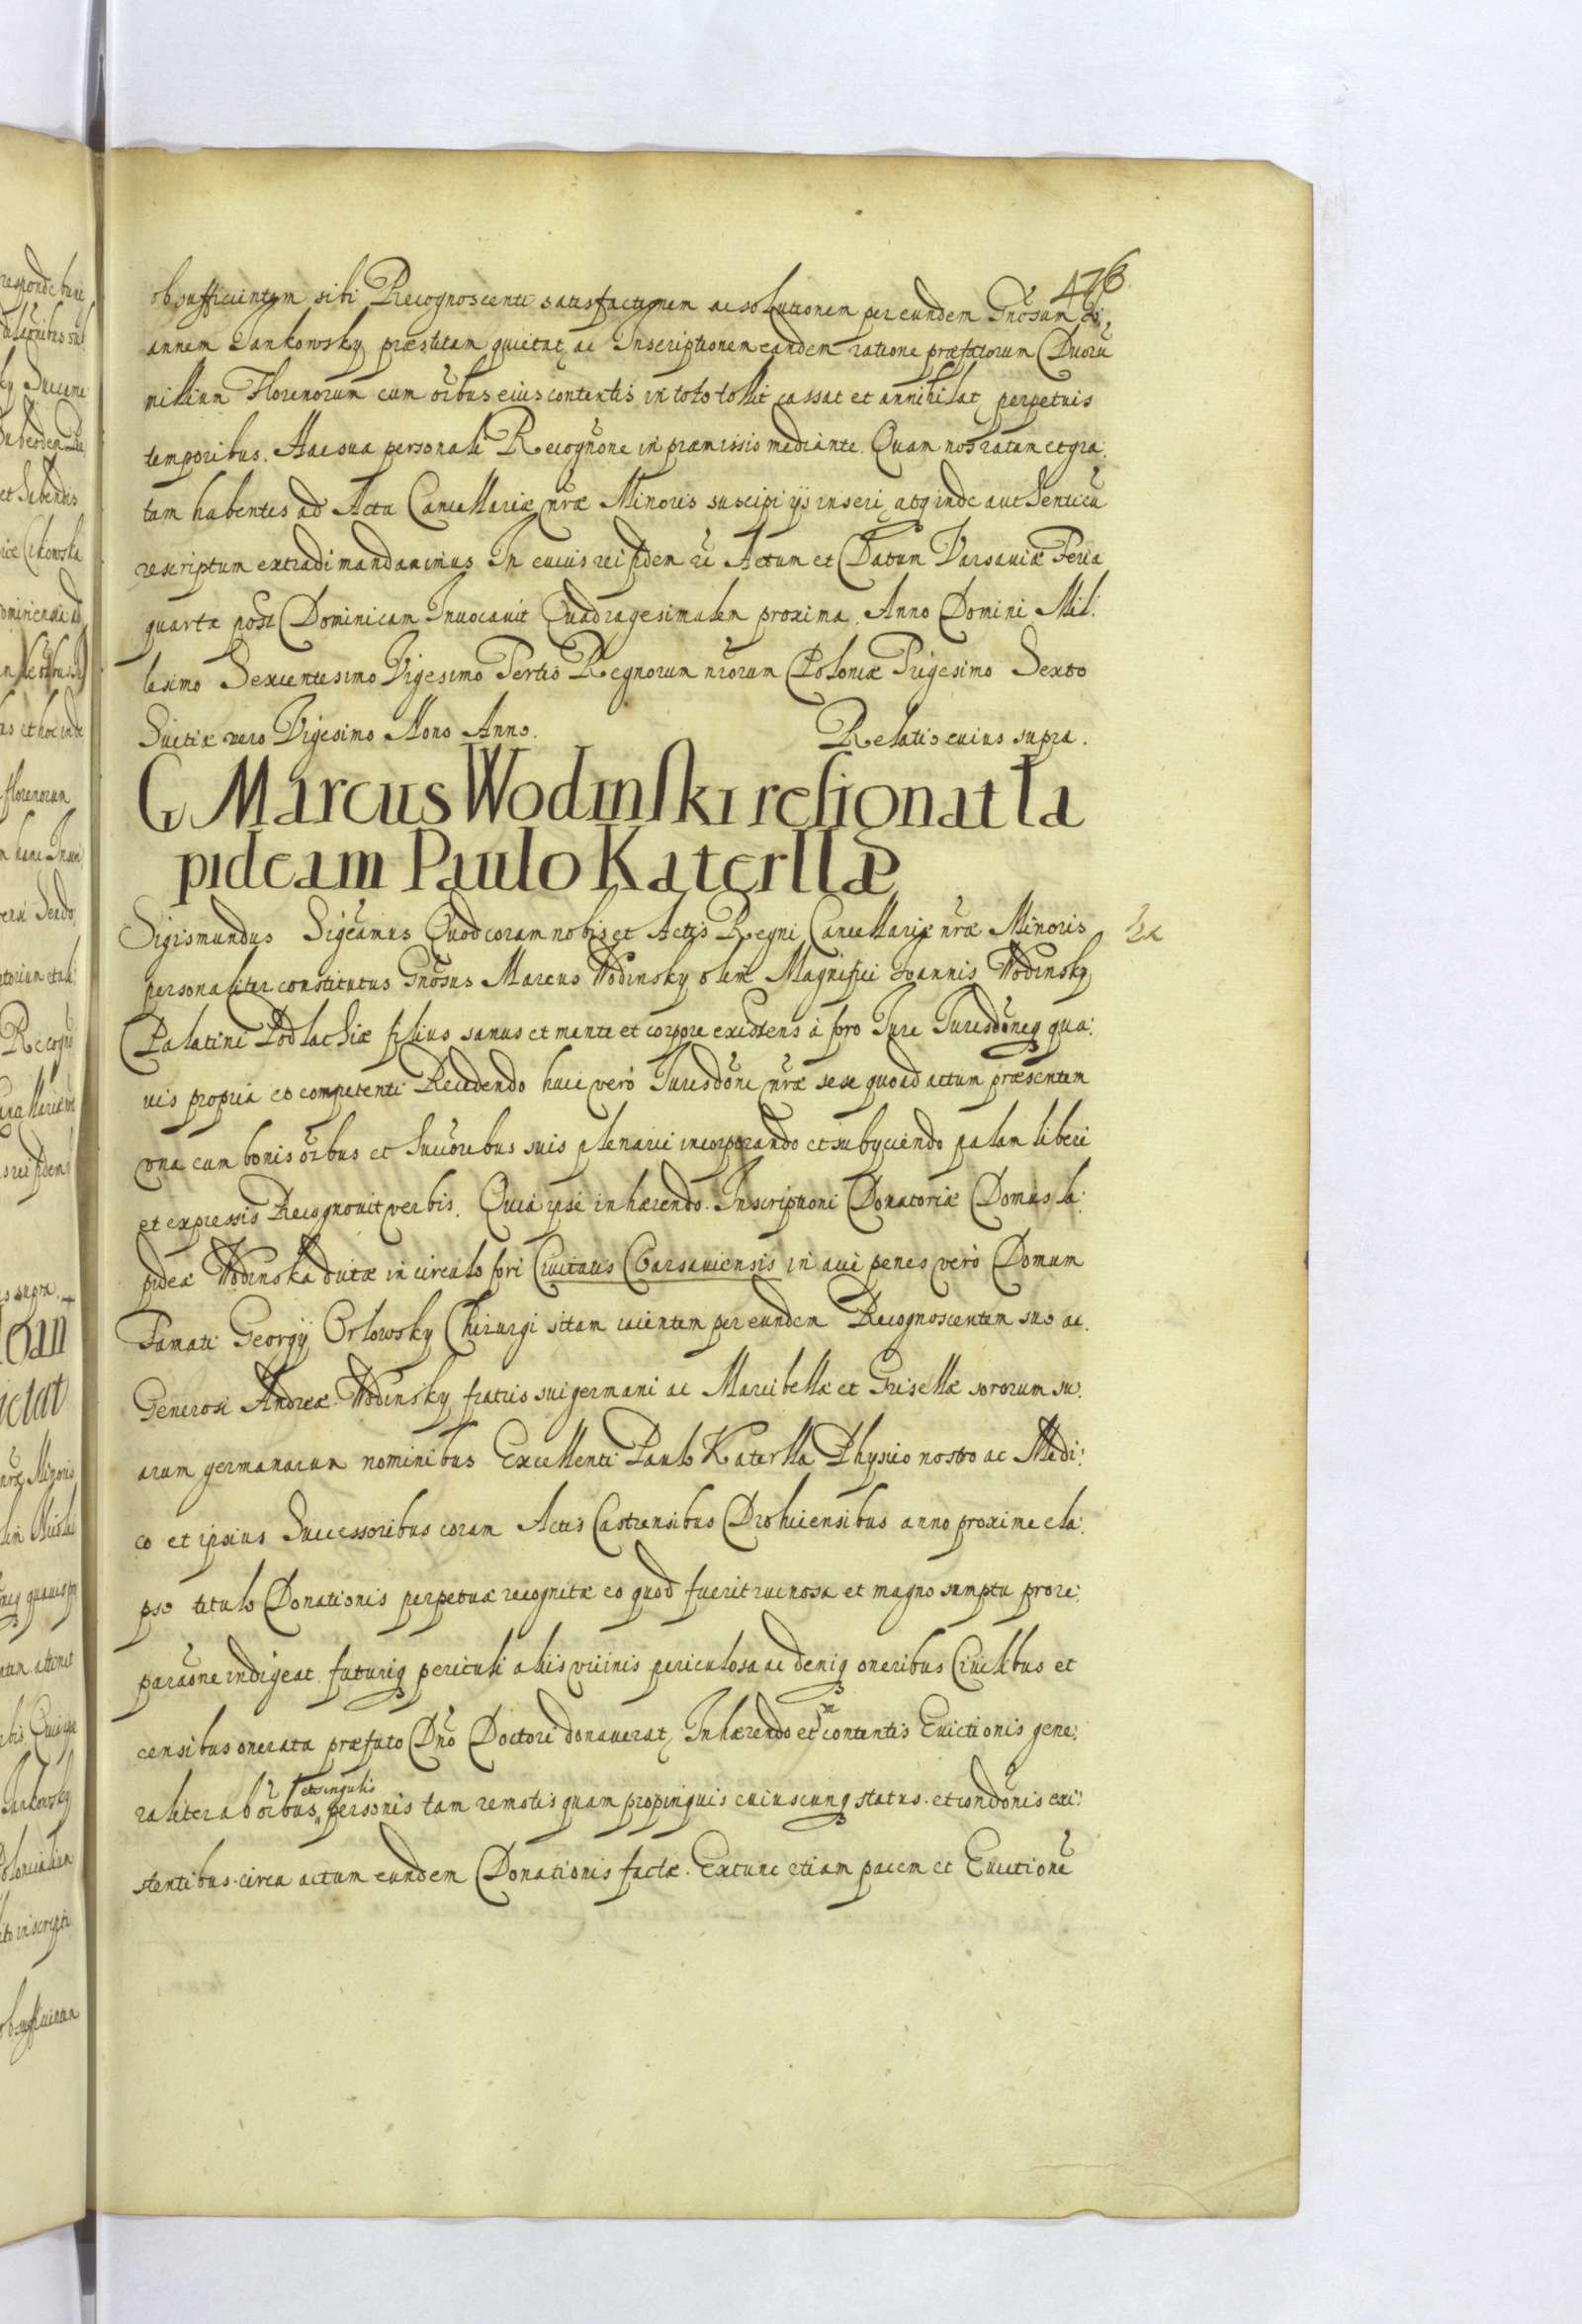 476
ob sufficientem sibi Recognoscenti satisfactionem ac solutionem per eundem Gnosum Jo,
annem Jankowsky præstitam quietat, ac Inscriptionem eandem ratione præfatorum Duorũ
millium Florenorum cum oĩbus eius contentis in toto tollit cassat et annihilat perpetuis
temporibus. Hac sua personali Recogñone in præmissis mediante. Quam nos ratam et gra:
tam habentes ad Acta Cancellariæ nræ Minoris suscipi ijs inseri, atq inde autenticũ
rescriptum extradi mandavimus In cuius rei fidem Actum et Datum Varsaviæ Feria
quarta post Dominicam Invocavit Quadragesimalem proxima. Anno Domini Mil:
lesimo Sexcentesimo Vigesimo Tertio Regnorum nrorum Poloniæ Trigesimo Sexto
Suetiæ vero Vigesimo Nono Anno. Relatio cuius supra.
G Marcus Wodinski resignat la
pideam Paulo Katerllæ
Sigismundus Sigcamus Quod coram nobis et Actis Regni Cancellariæ nræ Minoris
personaliter constitutus Gnosus Marcus Wodinsky olim Magnifici Ioannis Wodinsky
Palatini Podlachiæ filius sanus et mente et corpore existens à foro Jure Jurisdoneq qua:
uis propria et competenti Recedendo huic verò Jurisdoni nræ sese quoad actum præsentem
vna cum bonis oĩbus et Succoribus suis plenarie incorporando et subijciendo palam liberi
et expressis Recognouit verbis. Quia ipse inhærendo Inscriptioni Donatoriæ Domus la:
pideæ Wodinska dictæ in circulo fori Ciuitatis Varsauiensis in acie penes verò Domum
Famati Georgij Orlowsky Chirurgi sitam iacentem per eundem Recognoscentem suo ac
Generosi Andreæ Wodinsky fratris sui germani ac Maribellæ et Grisellæ sororum su:
arum germanarum nominibus Excellenti Paulo Katerlla Physico nostro ac Medi:
co et ipsius Successoribus coram Actis Castrensibus Drohiciensibus anno proxime ela:
pso titulo Donationis perpetuæ recognitæ eo quod fuerit ruinosa et magno sumptu pro re:
paraone indigeat futuriq periculi aliis vicinis periculosa ac deniq oneribus Ciuilibus et
censibus onerata præfato Dño Doctori donauerat, Inhærendo et contentis Euictionis gene:
raliter ab oĩbus et singulis personis tam remotis quam propinquis cuiuscunq status et condonis exi:
stentibus circa actum eundem Donationis factæ. Extunc etiam pacem et Euictionẽ